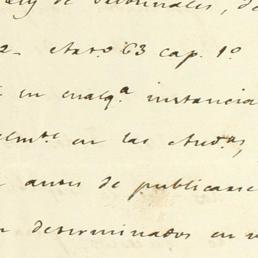 ley de Tribunales, de
2- etat.º 63 cap. 1.º
en cualq.ª instancia
elmte. en las Aud.as,
antes de publicarse
n determinados en